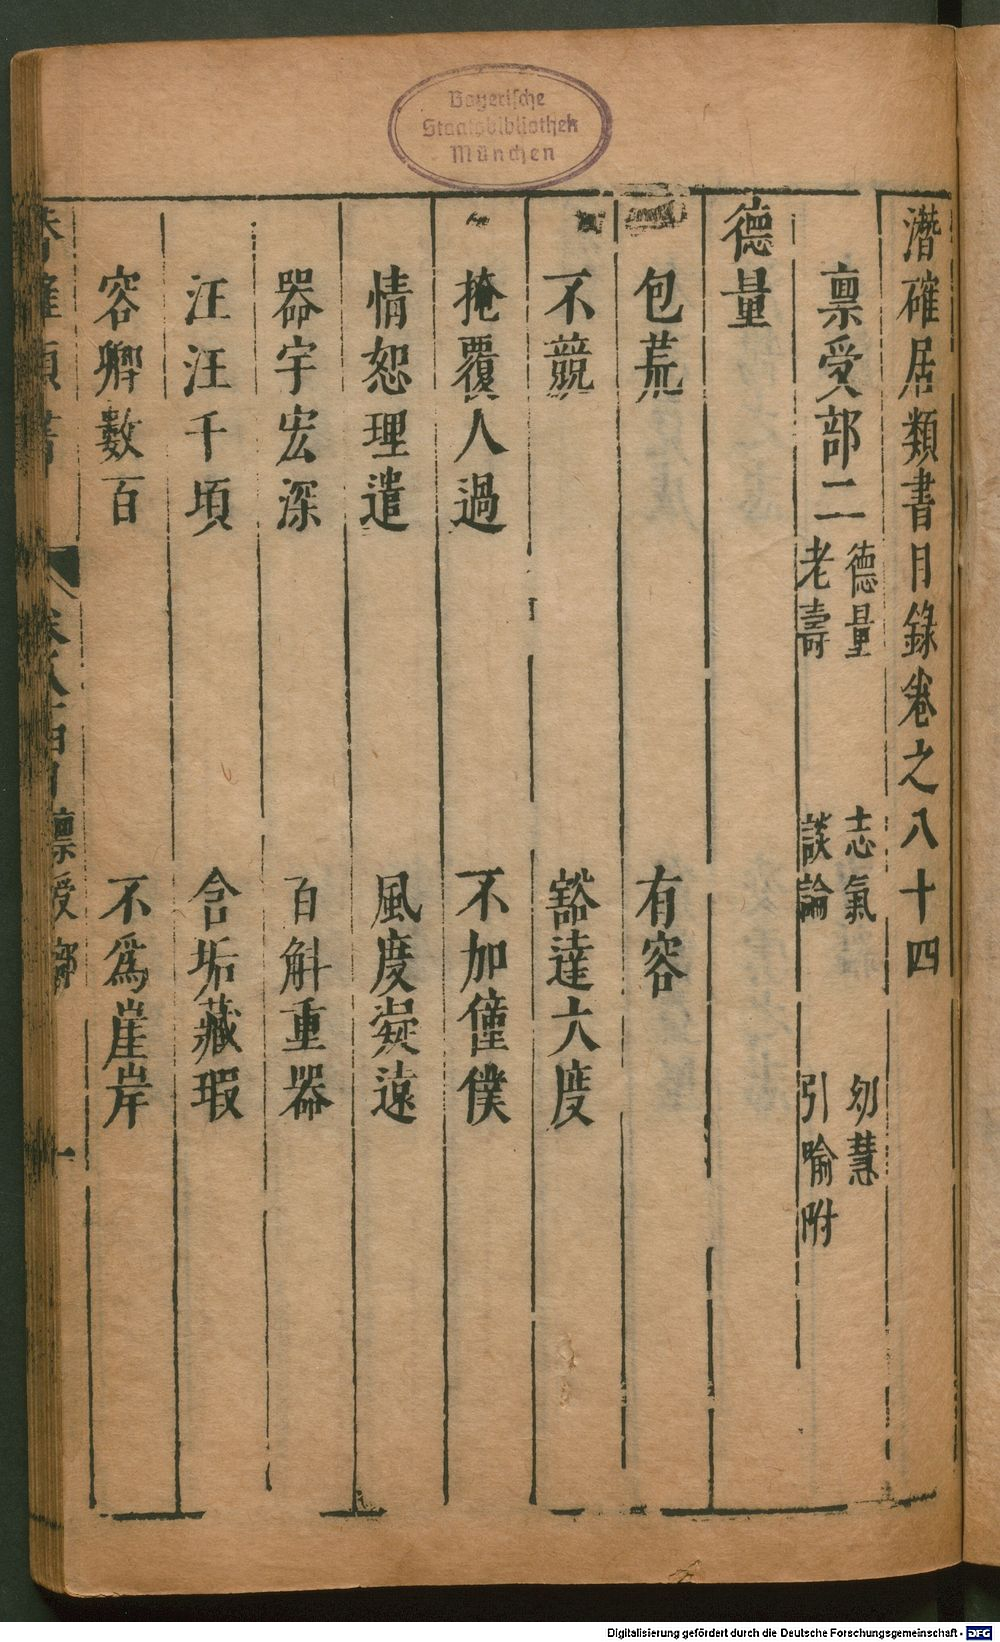 Bayerische
Staatsbibliothek
München
潛確居類書目錄卷之八十四
禀受部二 德量 志氣 幼慧
老壽 談論 引喻附
德量
包荒 有容
不競 豁達大度
掩覆人過 不加僮僕
情恕理遣 風度凝遠
器宇宏深 百斛重器
汪汪千頃 含垢藏瑕
容卿數百 不爲崖岸
禀受部
一
Digitalisierung gefördert durch die Deutsche Forschungsgemeinschaft - DFG